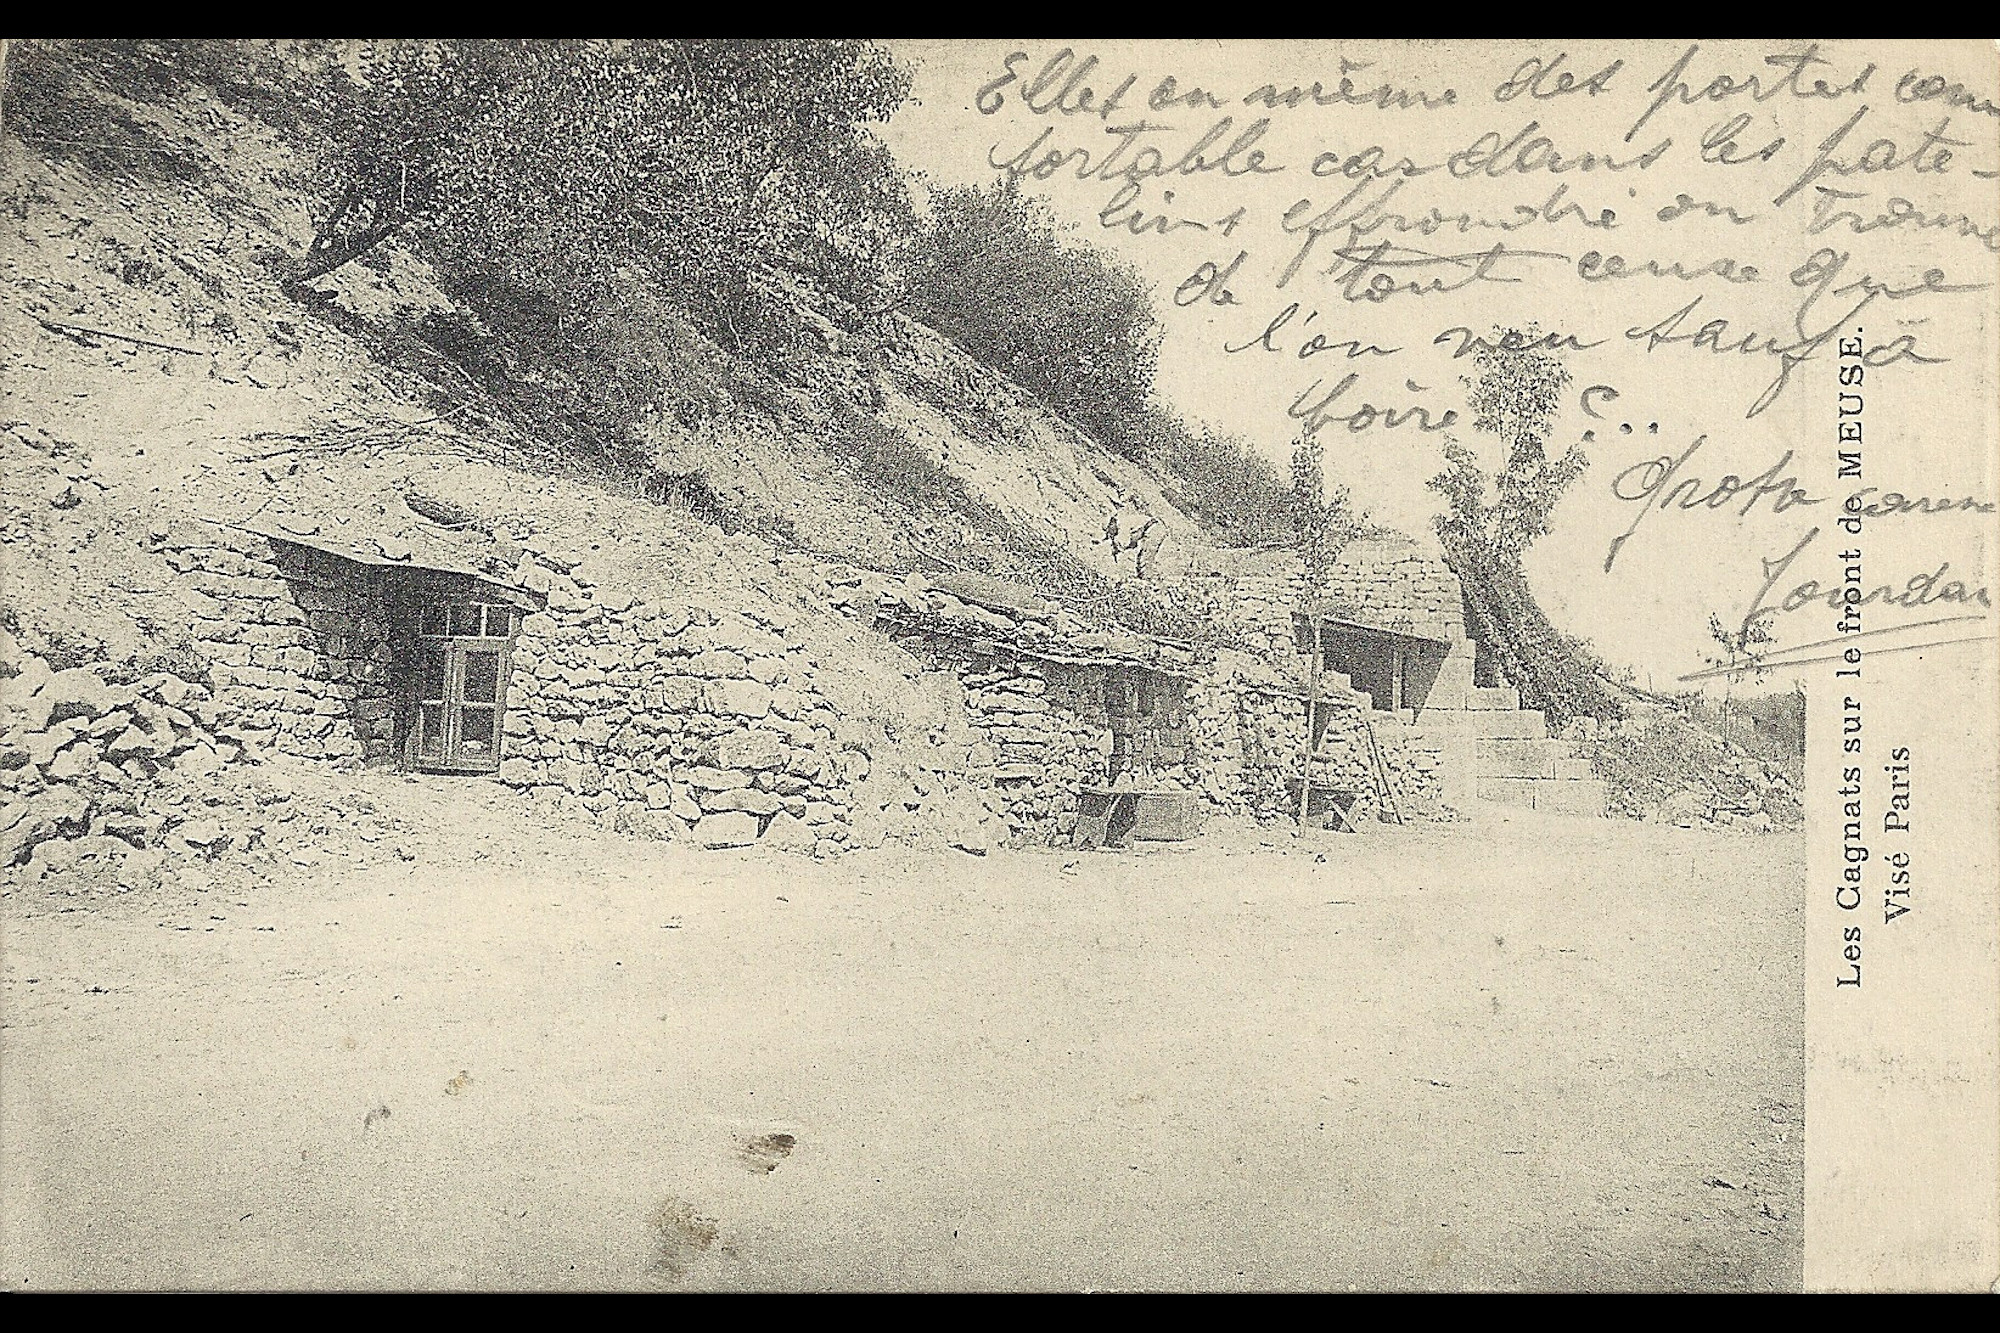 Elles on même des portes com
fortable car dans les pate-
lins effrondré on trouve
de tout ceuse que
l'on veu sauf à
boire ?..
Jourdan
Les Cagnats sur le front de MEUSE.
Visé Paris